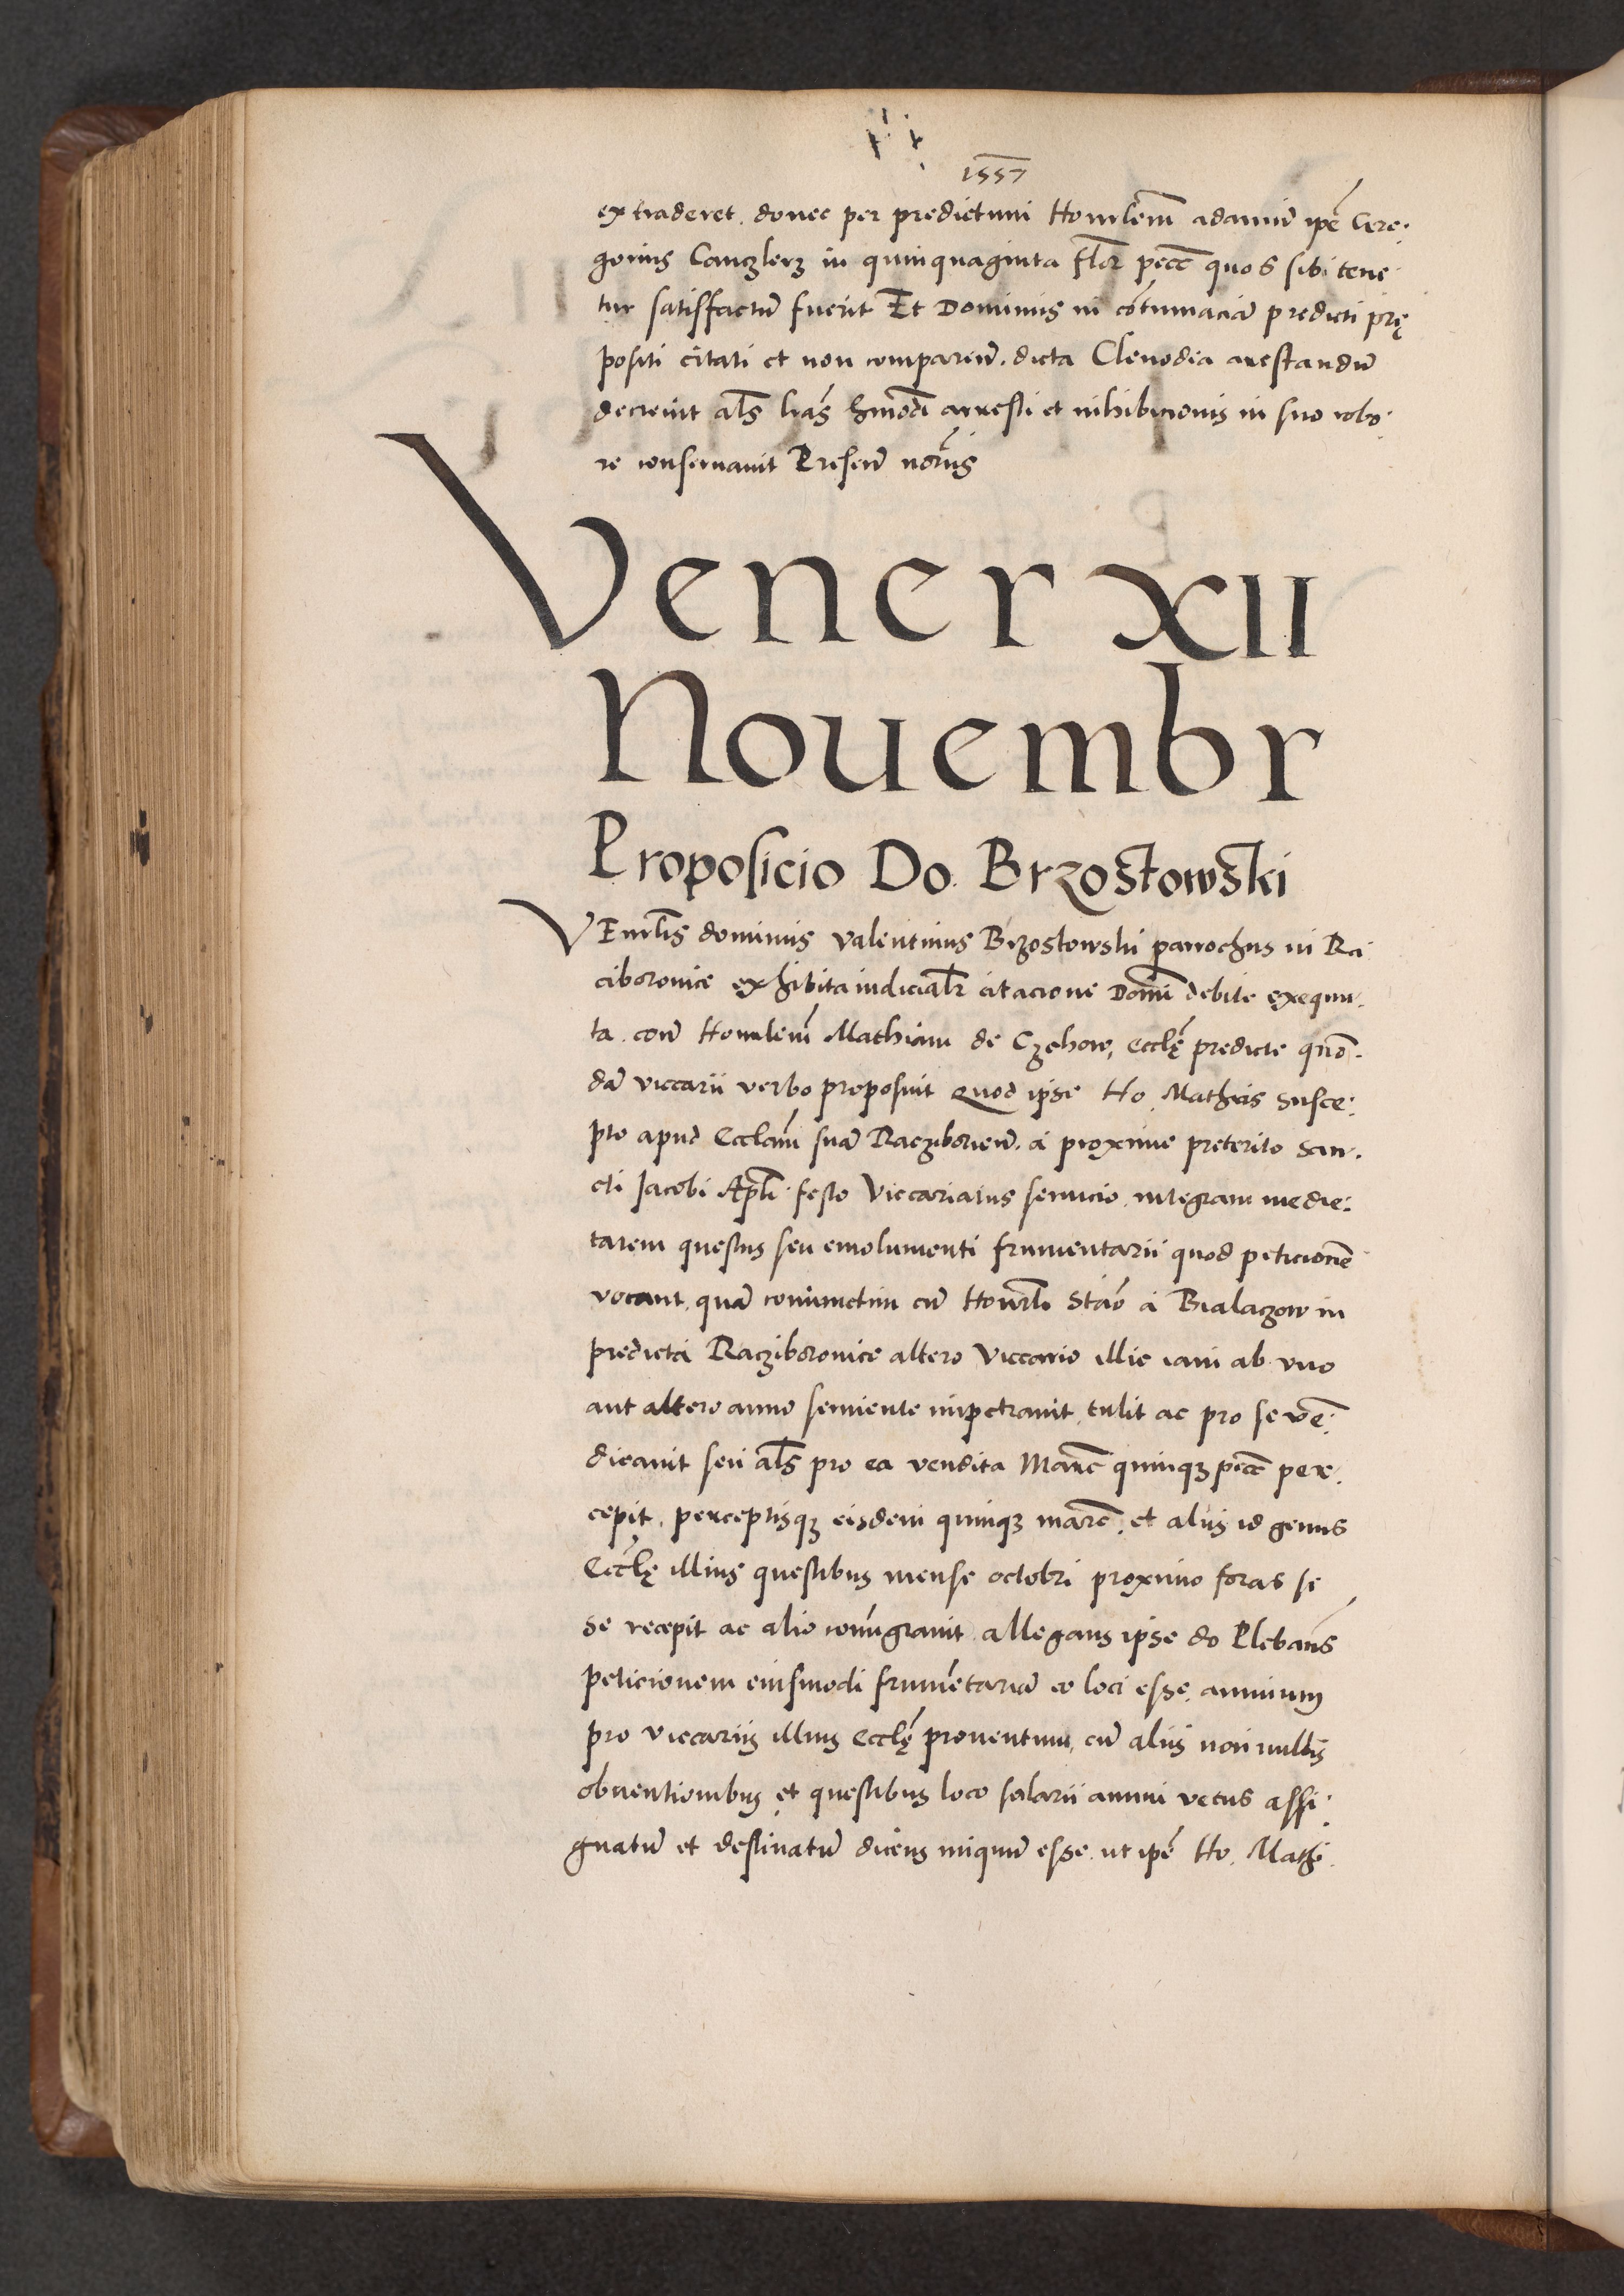 1557
extraderet. donec per predictum Honorlem̄ adamū ipē Gre-
gorius Canczlerz in quinquaginta flor̄ pec̄ quos sibi tene
tur satisfactū fuerit Et Dominus in cōtumaciā predicti prę
positi citati et non comparen̄. dicta Clenodia arestandū
decreuit als̄ lrās hm̄oði arresti et inhibicionis in suo robo-
re conseruauit Presen̄ notrīs
Vener XII
Nouembr
Proposicio Do. Brzostowski
VEnrlis̄ dominus Valentinus Brzostowski parrochus in Ra
ciboronice exhibita iudicialr̄ citacione Domī debite exequu-
ta. con̄ Honorlem̄ Mathiam de Czchow, eccl̄ę predicte quō-
dā viccarii verbo proposuit Quod ipse Ho. Mathias susce-
pto apud Eccl̄am suā Racziborien̄. a proxime preterito San-
cti Jacobi Apl̄i festo Viccariatus seruicio. integram medie-
tatem questus seu emolumenti frumentarii quod peticionē
vocant. quā coniunctim cū Honorl̄i Stāo a Bialaczow in
predicta Racziboronice altero Viccario illic iam ab vno
aut altero anno seruiente impetrauit, tulit ac pro se vē-
dicauit seu als̄ pro ea vendita Marc̄ quinqꝫ pec̄ per-
cepit, perceptisqꝫ eisdem quinqꝫ marc̄. et aliis id genus
Eccl̄ę illius questibus mense octobri proximo foras se
se recepit ac alio com̄igrauit. allegans ipse do Plebanūs
peticionem eiusmodi frumētariā eo loci esse. annuum
pro viccariis illius eccl̄ę prouentum, cū aliis non nullis
obuentionibus et questibus loco salarii annui vetus assi-
gnatū et destinatū dicens iniquū esse. ut ipē Ho. Math̄